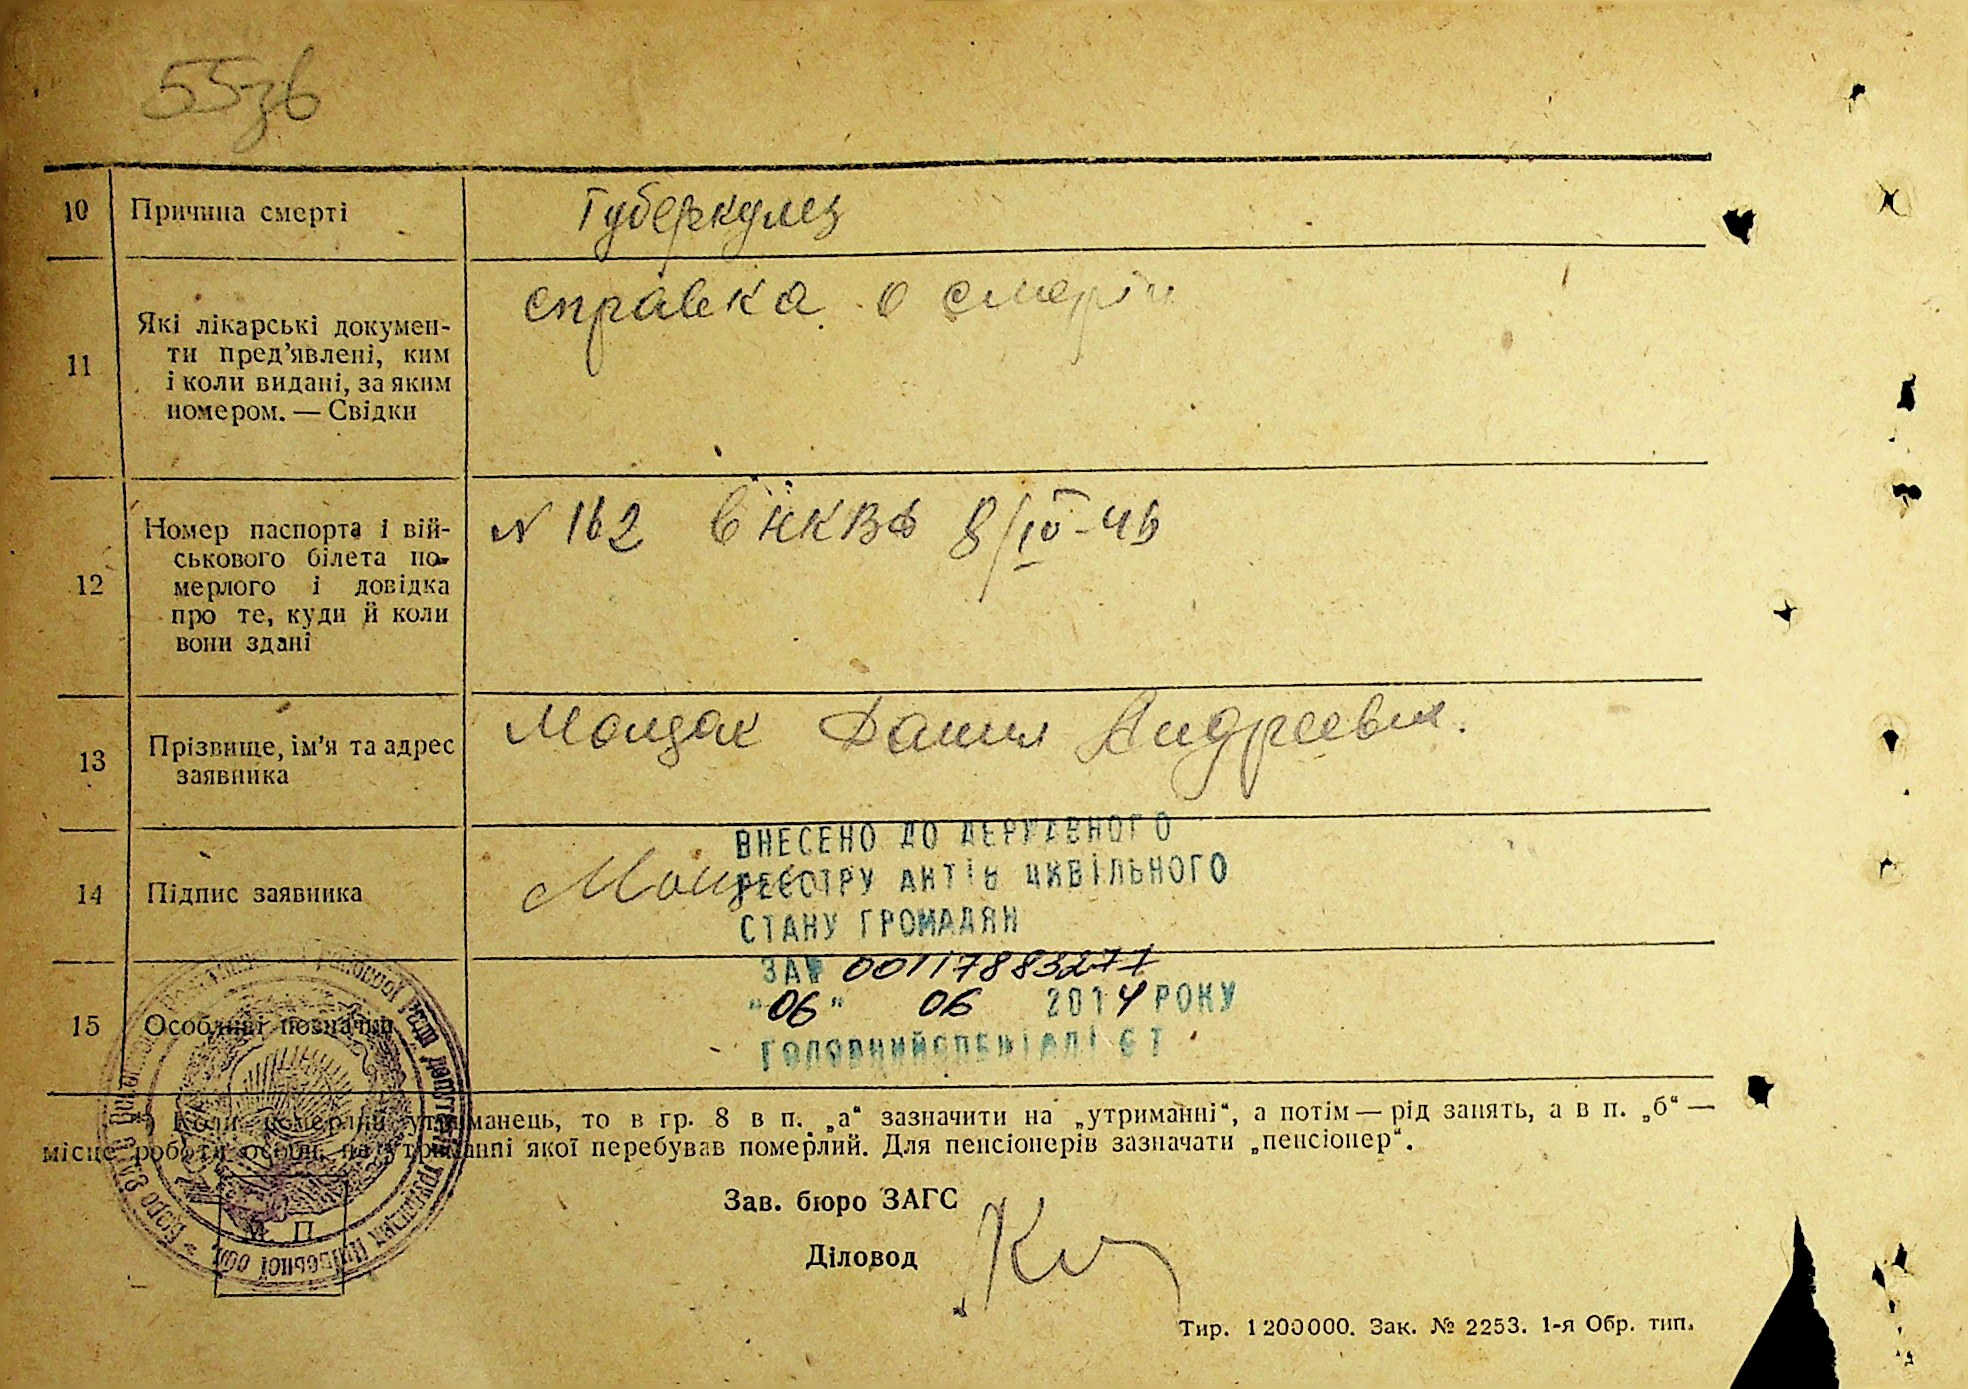 55зв
10 Причина смерті Туберкулез
11 Які лікарські докумен-
ти пред’явлені, ким
і коли видані, за яким
номером. — Свідки
справка о смерти
12 Номер паспорта і вій-
ськового білета по-
мерлого і довідка
про те, куди й коли
вони здані
N 162 в НКВД 8/IV-46
13 Прізвище, ім’я та адрес
заявника
Молдак Данил Андреевич.
14 Підпис заявника
ВНЕСЕНО ДО ДЕРЖАВНОГО
РЕЄСТРУ АКТІВ ЦИВІЛЬНОГО
СТАНУ ГРОМАДЯН
ЗА№ 00117883277
"06" 06 2014 РОКУ
ГОЛОВНИЙ СПЕЦІАЛІСТ
15 Особливі позначки
Коли померлий утриманець, то в гр. 8 в п. „а“ зазначити на „утриманні“, а потім — рід занять, а в п. „б“ —
місце роботи особи, на утриманні якої перебував померлий. Для пенсіонерів зазначати „пенсіонер“.
М. П.
Зав. бюро ЗАГС
Діловод
Тир. 1200000. Зак. № 2253. 1-я Обр. тип.